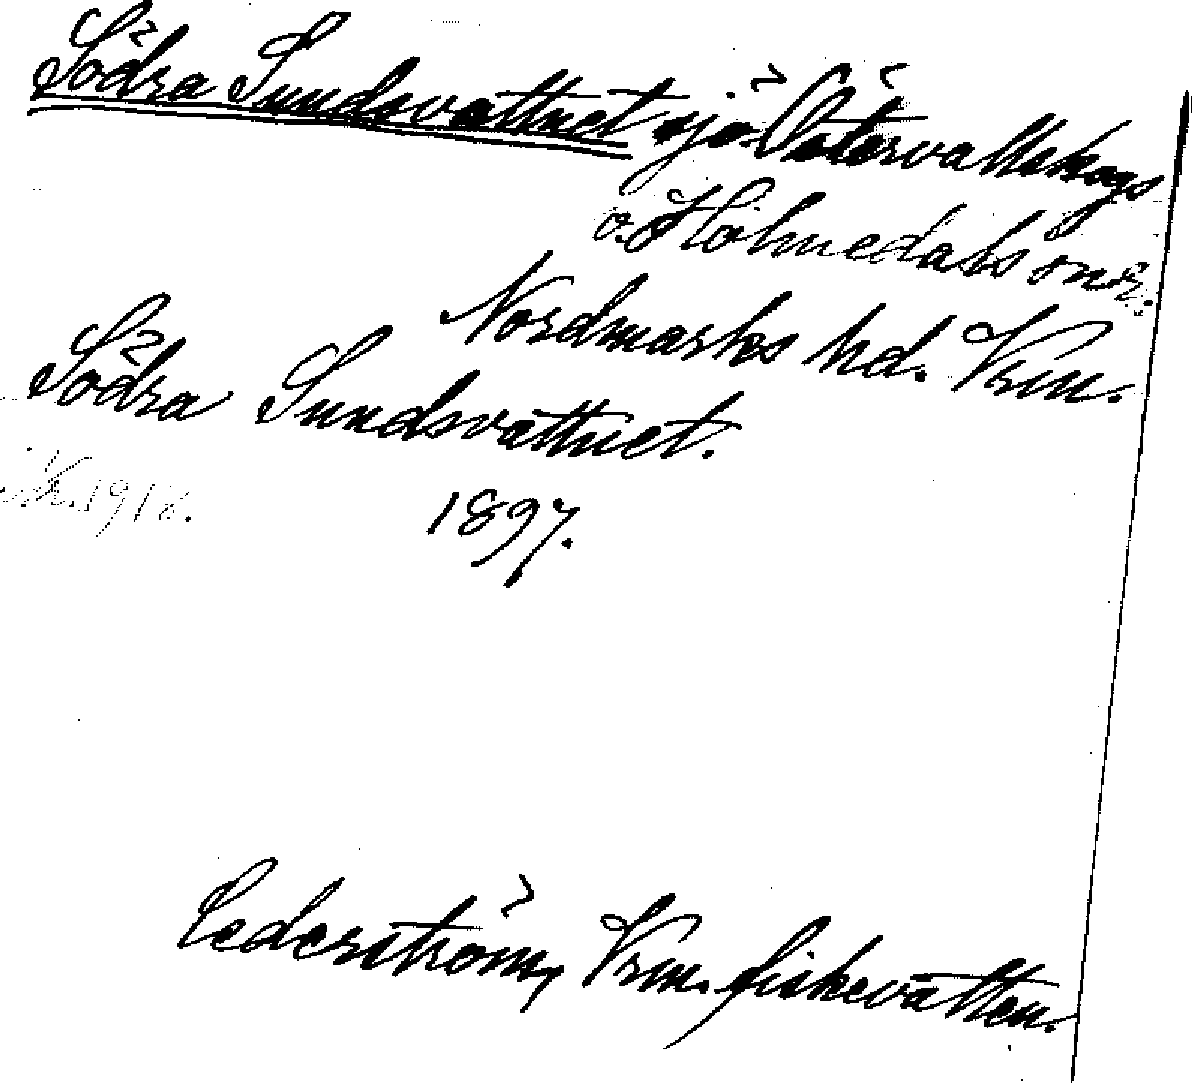 Södra Sundsvattnet sjö Östervallskogs
o. Holmedals snr.
Nordmarks hd. Vrm.
Södra Sundsvattnet.
1916.
1897.
Cederström, Vrm. fiskevatten.